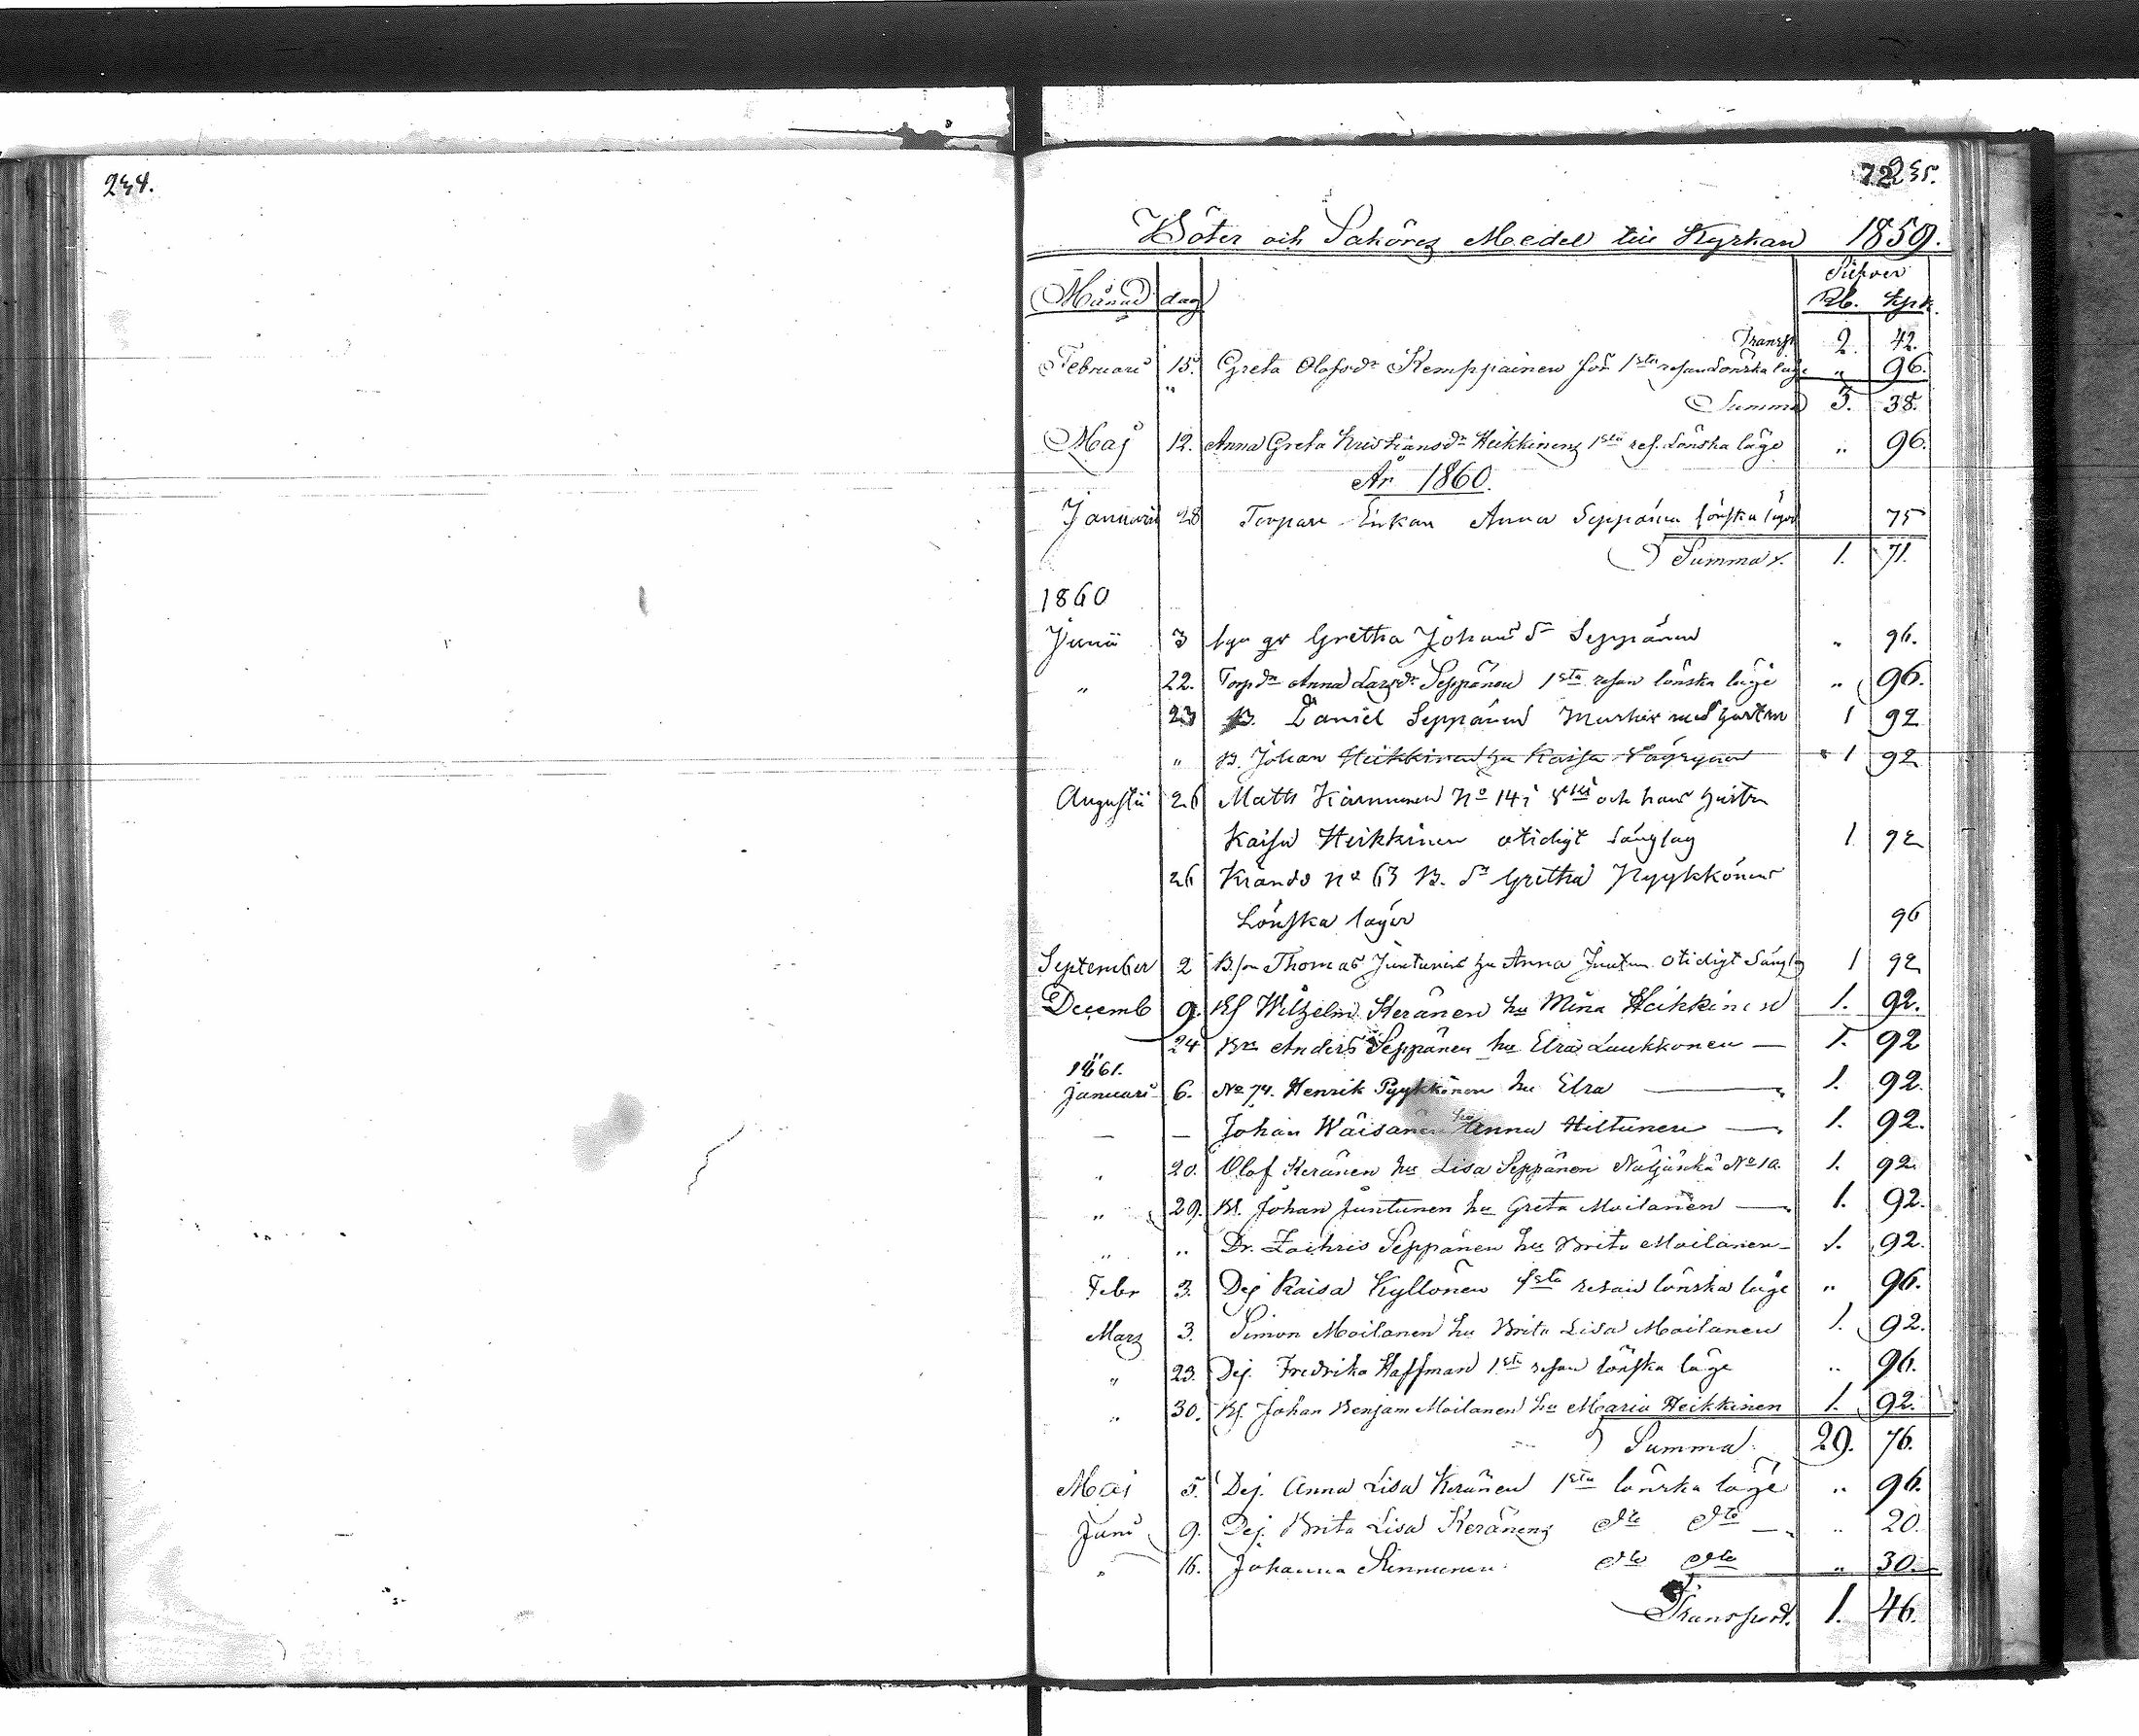 234.
72 235.
Böter och Saköres Medel till Kyrkan 1859.
Silfver
Månad dag Rb. Kpk.
Transpt 2. 42.
Februari 15. Greta Olofsdr Kemppainen för 1sta resan Lönska läge " 96.
Summa 3. 38.
Maj 12. Anna Greta Kristiansdr Heikkinen 1sta res. Lönska läge " 96.
År 1860.
Januarii 28 Torpare Enkan Anna Seppänen lönska läger 75
Summa 1. 71.
1860
Junii 3 Gretha Johans dr Seppänen " 96.
" 22. Torp dr Anna Larsdr Seppänen 1sta resan lönska läge " 96.
23 B. Daniel Seppänen med hustru 1 92
" B. Johan Heikkinen hu Kaisa 1 92
Augustii 26 Matts No 14 och hans hustru
Kaisa Heikkinen otidigt sänglag 1 92
26 No 63 B. dr Gretha Kyykkönen
Lönska läger 96
September 2 B.son Thomas Juntunen hu Anna Juntun. otidigt Sänglag 1 92
Decemb 9. Bf Wilhelm Keränen hu Mina Heikkinen 1. 92.
24 Bn Anders Seppänen hu Elsa Laukkonen — 1. 92
1861.
Januari 6. No 74. Henrik Pyykkönen hu Elsa — 1. 92.
— — Johan Wäisänen hu Anna Hiltunen — 1. 92.
" 20. Olof Keränen hu Lisa Seppänen Näljänkä No 10. 1. 92.
" 29. Bf. Johan Juntunen hu Greta Moilanen — 1. 92.
" " Dr. Zachris Seppänen hu Brita Moilanen — 1. 92.
Febr 3. Dej Kaisa Kyllönen 1sta resan lönska läge " 96.
Mars 3. Simon Moilanen hu Brita Lisa Moilanen 1. 92.
" 23. Dej. Fredrika Haffman 1sta resan lönska läge " 96.
" 30. Bf. Johan Benjam Moilanen hu Maria Heikkinen 1. 92.
Summa 29. 76.
Maj 5. Dej. Anna Lisa Keränen 1sta lönska läge " 96.
Juni 9. Dej. Brita Lisa Keränen dto dto — " 20.
" 16. Johanna Kinnunen dto dto " 30.
Transport. 1. 46.